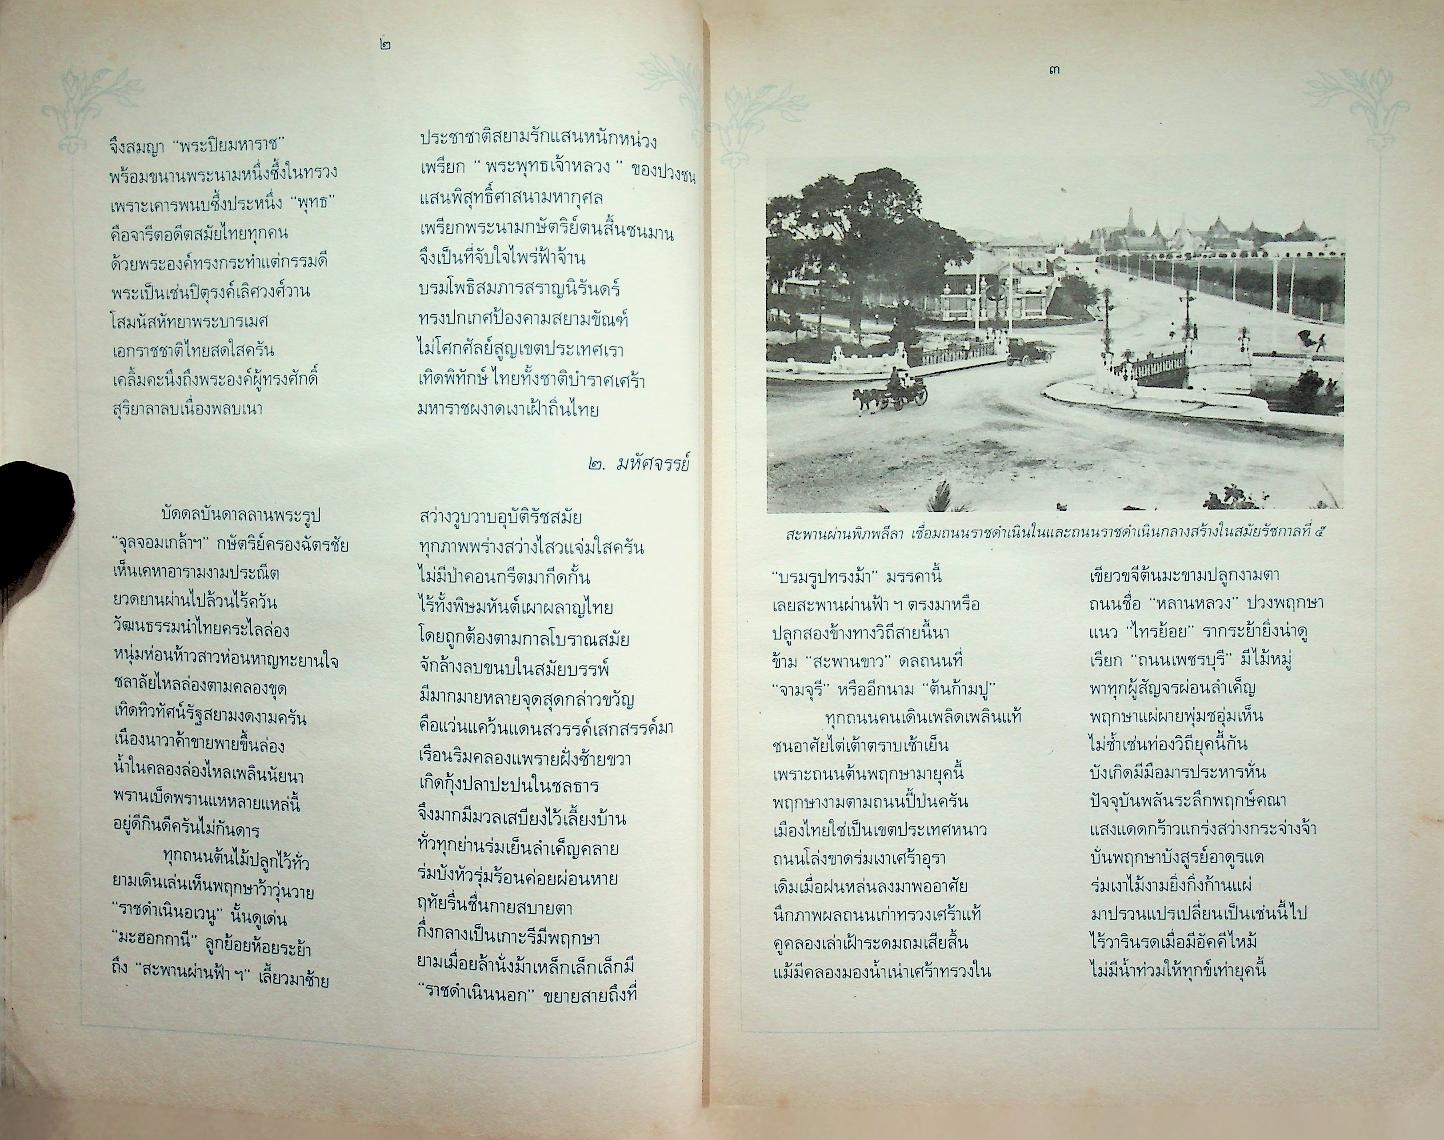 ๒
จึงสมญา “พระปิยมหาราช” ประชาชาติสยามรักแสนหนักหน่วง
พร้อมขนานพระนามหนึ่งซึ้งในทรวง เพรียก “ พระพุทธเจ้าหลวง ” ของปวงชน
เพราะเคารพนบซึ้งประหนึ่ง “พุทธ” แสนพิสุทธิ์ศาสนามหากุศล
คือจารีตอดีตสมัยไทยทุกคน เพรียกพระนามกษัตริย์ตนสิ้นชนมาน
ด้วยพระองค์ทรงกระทำแต่กรรมดี จึงเป็นที่จับใจไพร่ฟ้าจ้าน
พระเป็นเช่นปิตุรงค์เลิศวงศ์วาน บรมโพธิสมภารสราญนิรันดร์
โสมนัสหัทยาพระบารเมศ ทรงปกเกศป้องคามสยามขัณฑ์
เอกราชชาติไทยสดใสครัน ไม่โศกศัลย์สูญเขตประเทศเรา
เคลิ้มคะนึงถึงพระองค์ผู้ทรงศักดิ์ เทิดพิทักษ์ไทยทั้งชาติบำราศเศร้า
สุริยาลาลบเนื่องพลบเนา มหาราชผงาดเงาเฝ้าถิ่นไทย
๒. มหัศจรรย์
บัดดลบันดาลลานพระรูป สว่างวูบวาบอุบัติรัชสมัย
“จุลจอมเกล้าฯ” กษัตริย์ครองฉัตรชัย ทุกภาพพร่างสว่างไสวแจ่มใสครัน
เห็นเคหาอารามงามประณีต ไม่มีป่าคอนกรีตมากีดกั้น
ยวดยานผ่านไปล้วนไร้ควัน ไร้ทั้งพิษมหันต์เผาผลาญไทย
วัฒนธรรมนำไทยคระไลล่อง โดยถูกต้องตามกาลโบราณสมัย
หนุ่มห่อนห้าวสาวห่อนหาญทะยานใจ จักล้างลบขนบในสมัยบรรพ์
ชลาลัยไหลล่องตามคลองขุด มีมากมายหลายจุดสุดกล่าวขวัญ
เทิดทิวทัศน์รัฐสยามงดงามครัน คือแว่นแคว้นแดนสวรรค์เสกสรรค์มา
เนืองนาวาค้าขายพายขึ้นล่อง เรือนริมคลองแพรายฝั่งซ้ายขวา
น้ำในคลองล่องไหลเพลินนัยนา เกิดกุ้งปลาปะปนในชลธาร
พรานเบ็ดพรานแหหลายแหล่นี้ จึงมากมีมวลเสบียงไว้เลี้ยงบ้าน
อยู่ดีกินดีครันไม่กันดาร ทั่วทุกย่านร่มเย็นลำเค็ญคลาย
ทุกถนนต้นไม้ปลูกไว้ทั่ว ร่มบังหัวรุ่มร้อนค่อยผ่อนหาย
ยามเดินเล่นเห็นพฤกษาว้าวุ่นวาย ฤทัยรื่นชื่นกายสบายตา
“ราชดำเนินอเวนู” นั้นดูเด่น กึ่งกลางเป็นเกาะรีมีพฤกษา
“มะฮอกกานี” ลูกย้อยห้อยระย้า ยามเมื่อยล้านั่งม้าเหล็กเล็กเล็กมี
ถึง “สะพานผ่านฟ้า ฯ” เลี้ยวมาซ้าย “ราชดำเนินนอก” ขยายสายถึงที่
๓
สะพานผ่านพิภพลีลา เชื่อมถนนราชดำเนินในและถนนราชดำเนินกลางสร้างในสมัยรัชกาลที่ ๕
“บรมรูปทรงม้า” มรรคานี้ เขียวขจีต้นมะขามปลูกงามตา
เลยสะพานผ่านฟ้า ฯ ตรงมาหรือ ถนนชื่อ “หลานหลวง” ปวงพฤกษา
ปลูกสองข้างทางวิถีสายนี้นา แนว “ไทรย้อย” รากระย้ายิ่งน่าดู
ข้าม “สะพานขาว” ดลถนนที่ เรียก “ถนนเพชรบุรี” มีไม้หมู่
“จามจุรี” หรืออีกนาม “ต้นก้ามปู” พาทุกผู้สัญจรผ่อนลำเค็ญ
ทุกถนนคนเดินเพลิดเพลินแท้ พฤกษาแผ่ผายพุ่มชอุ่มเห็น
ชนอาศัยไต่เต้าตราบเช้าเย็น ไม่ช้ำเช่นท่องวิถียุคนี้กัน
เพราะถนนต้นพฤกษามายุคนี้ บังเกิดมีมือมารประหารหั่น
พฤกษางามตามถนนปี้ป่นครัน ปัจจุบันพลันระลึกพฤกษ์คณา
เมืองไทยใช่เป็นเขตประเทศหนาว แสงแดดกร้าวแกร่งสว่างกระจ่างจ้า
ถนนโล่งขาดร่มเงาเศร้าอุรา บั่นพฤกษาบังสูรย์อาดูรแด
เดิมเมื่อฝนหล่นลงมาพออาศัย ร่มเงาไม้งามยิ่งกิ่งก้านแผ่
นึกภาพผลถนนเก่าทรวงเศร้าแท้ มาปรวนแปรเปลี่ยนเป็นเช่นนี้ไป
คูคลองเล่าเฝ้าระดมถมเสียสิ้น ไร้วารินรดเมื่อมีอัคคีไหม้
แม้มีคลองมองน้ำเน่าเศร้าทรวงใน ไม่มีน้ำท่วมให้ทุกข์เท่ายุคนี้